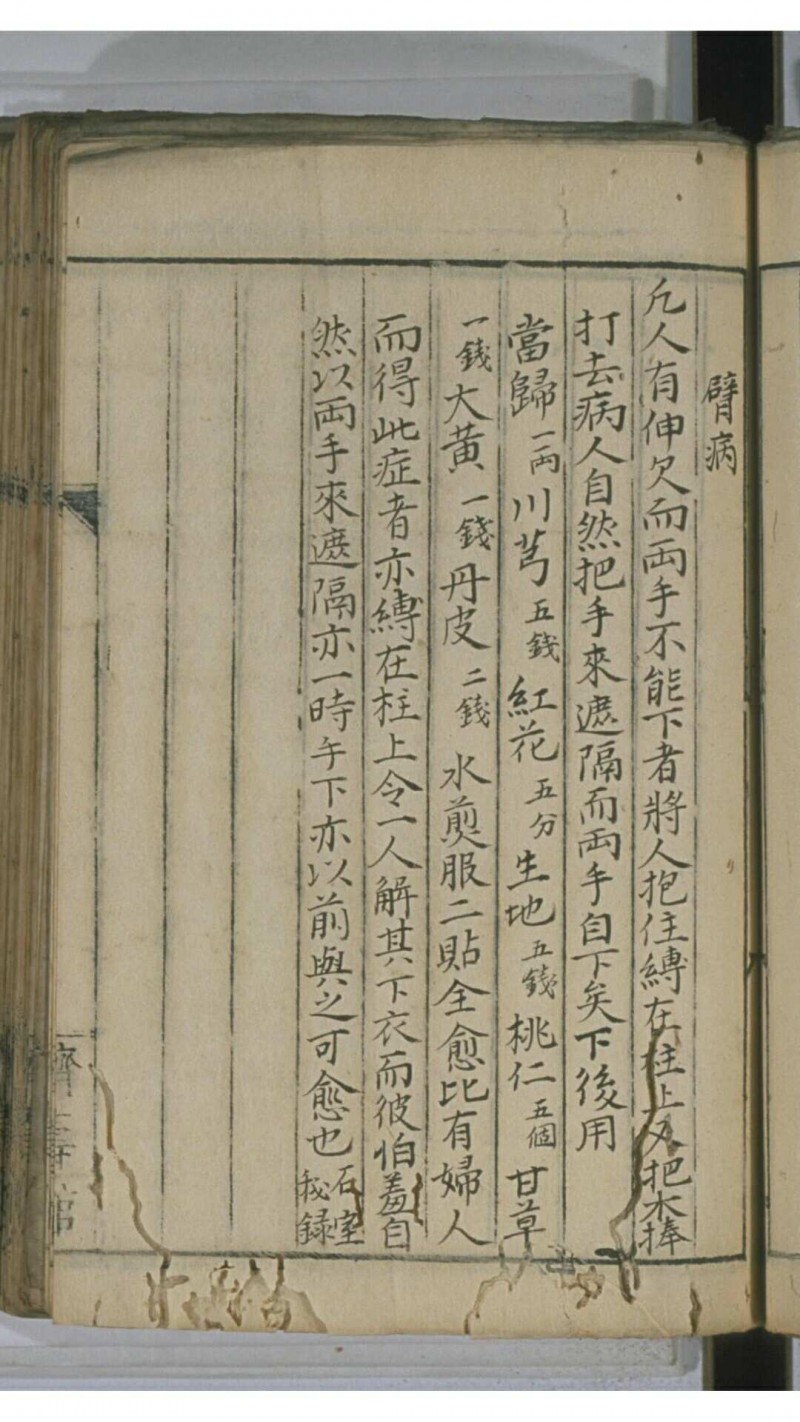 臂病
凢人有伸欠而両手不能下者將人抱住縛在柱上又把木捧
打去病人自然把手來遮隔而両手自下矣下後用
當歸一両川芎五錢紅花五分生地五錢桃仁五個甘草
一錢大黄一錢丹皮二錢水煎服二貼全愈比有婦人
而得此症者亦縛在柱上令一人解其下衣而彼怕羞自
然以両手來遮隔亦一時午下亦以前與之可愈也石室秘録